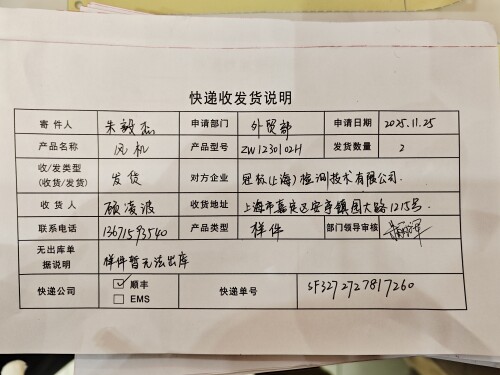 快递收发货说明
寄件人 朱毅杰 申请部门 外贸部 申请日期 2025.11.25
产品名称 风机 产品型号 ZW1230102H 发货数量 2
收/发类型 (收货/发货) 发货 对方企业 冠标(上海)检测技术有限公司.
收货人 顾凌波 收货地址 上海市嘉定区安亭镇园大路1215号.
联系电话 13671593540 产品类型 样件 部门领导审核
无出库单据说明 样件暂无法出库
快递公司 ☑ 顺丰 ☐ EMS 快递单号 SF3272727817260